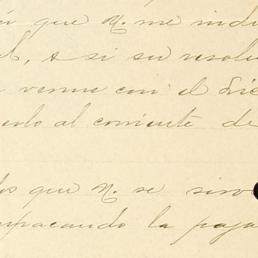 que V. me indi
, o si su resolu
venme con el Lic
solo al corriente de
los que V. se sirv
empacando la paja